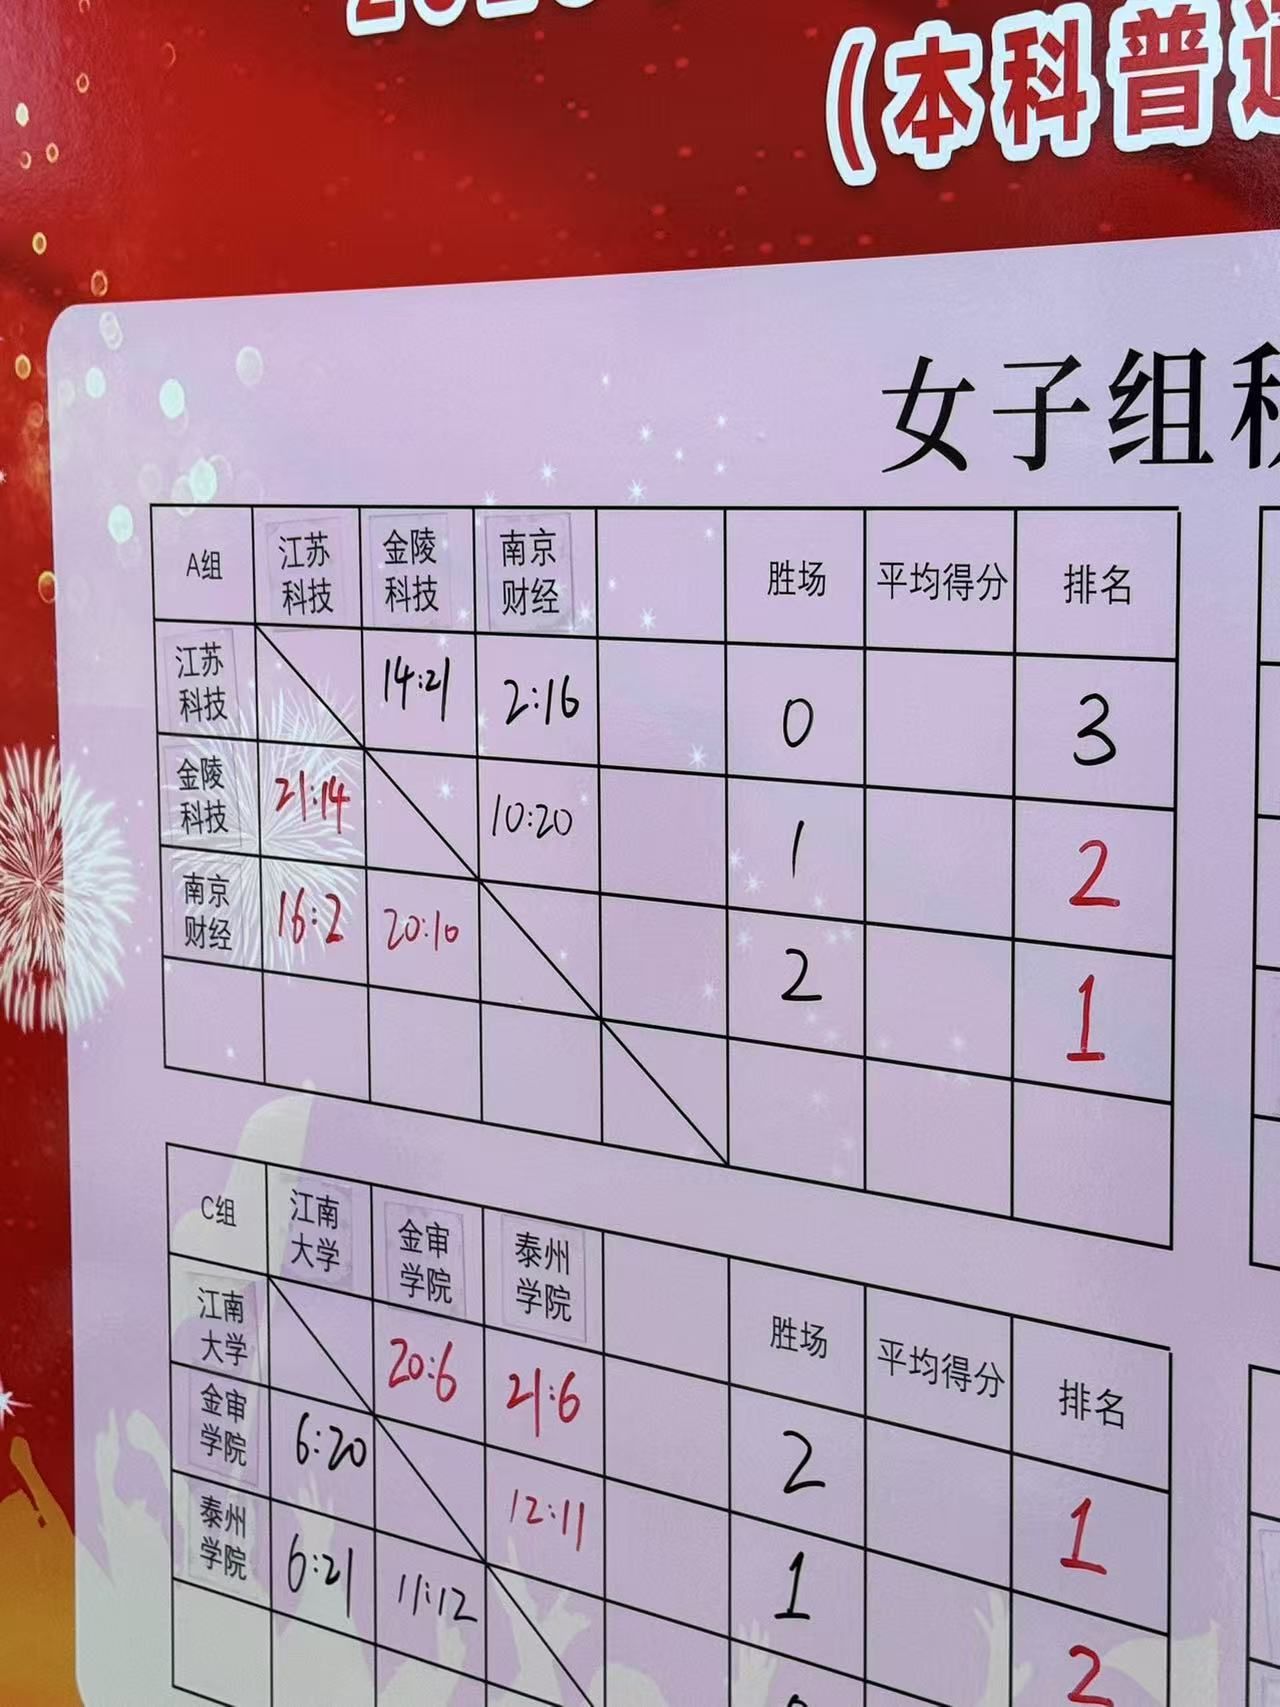 (本科普通
女子组积
A组 江苏科技 金陵科技 南京财经 胜场 平均得分 排名
江苏科技 14:21 2:16 0 3
金陵科技 21:14 10:20 1 2
南京财经 16:2 20:10 2 1
C组 江南大学 金审学院 泰州学院 胜场 平均得分 排名
江南大学 20:6 21:6 2 1
金审学院 6:20 12:11 1 2
泰州学院 6:21 11:12